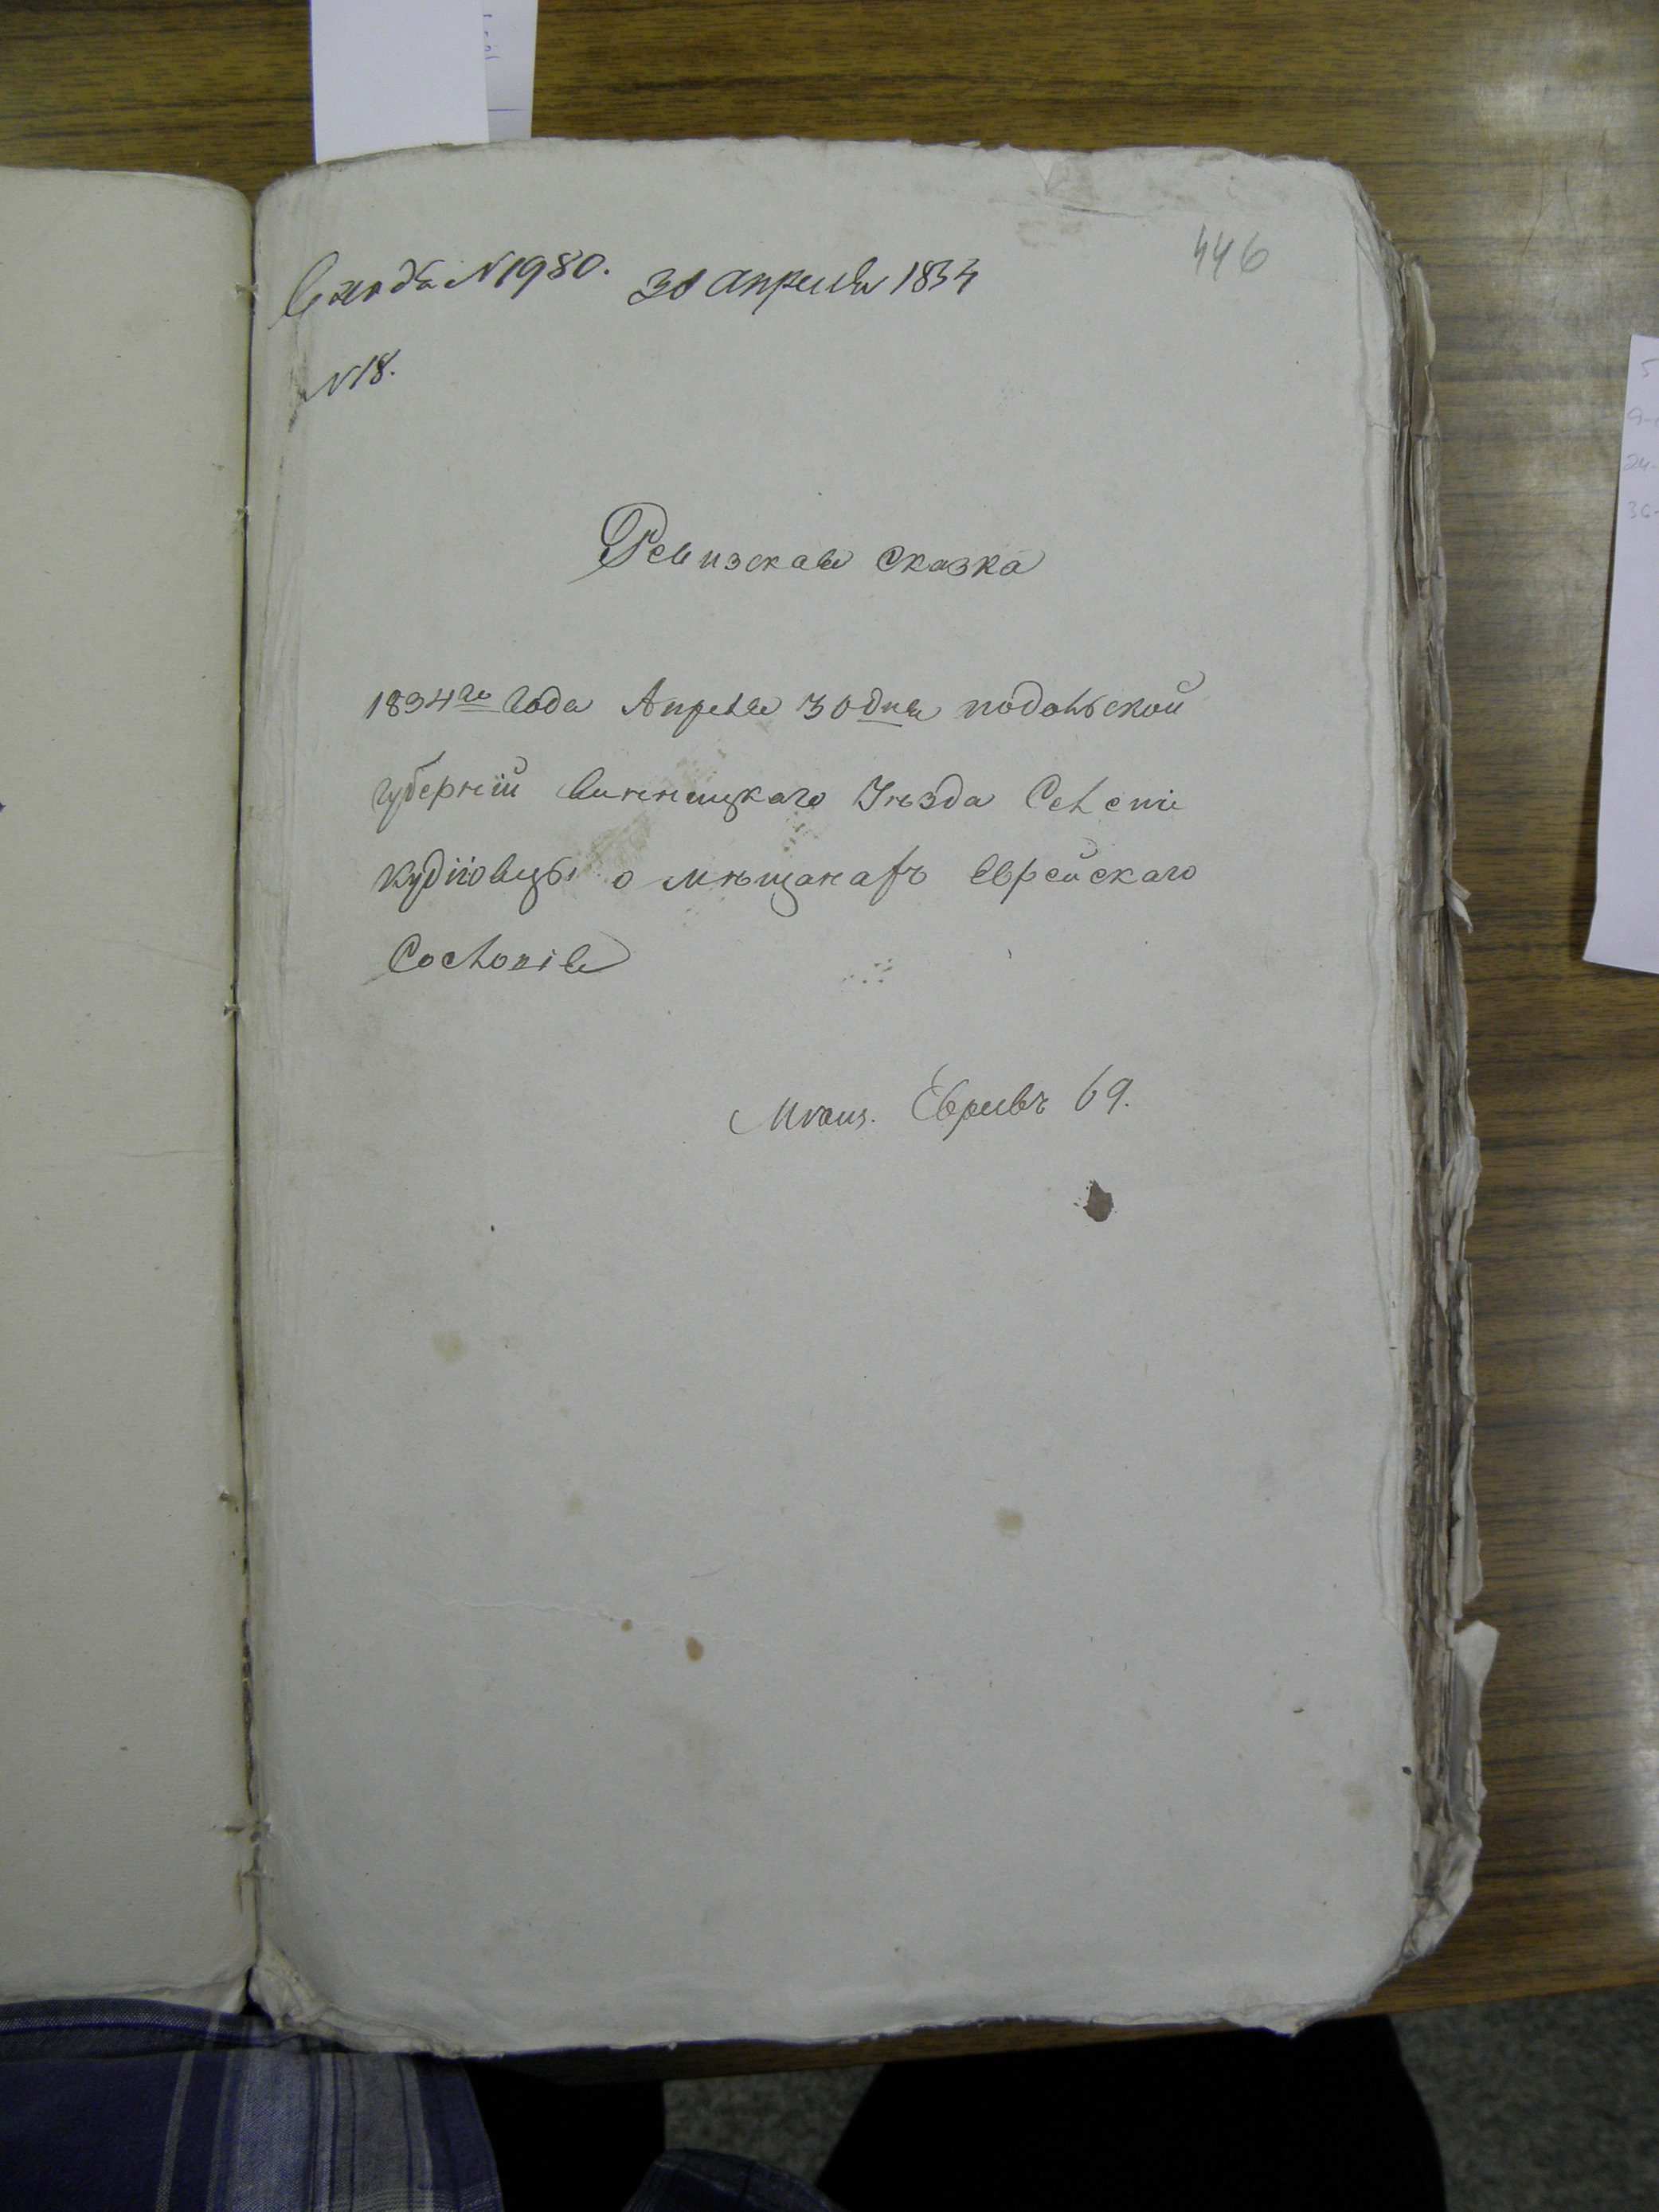 446
Входъ N 1980. 30 апреля 1834
N 18.
Ревизская сказка
1834го Года Апреля 30 дня подольской
губерніи винницкаго Уѣзда Селеніе
кудіовцы о мѣщанахъ еврейскаго
Сословія
Мѣщ. Евреевъ 69.